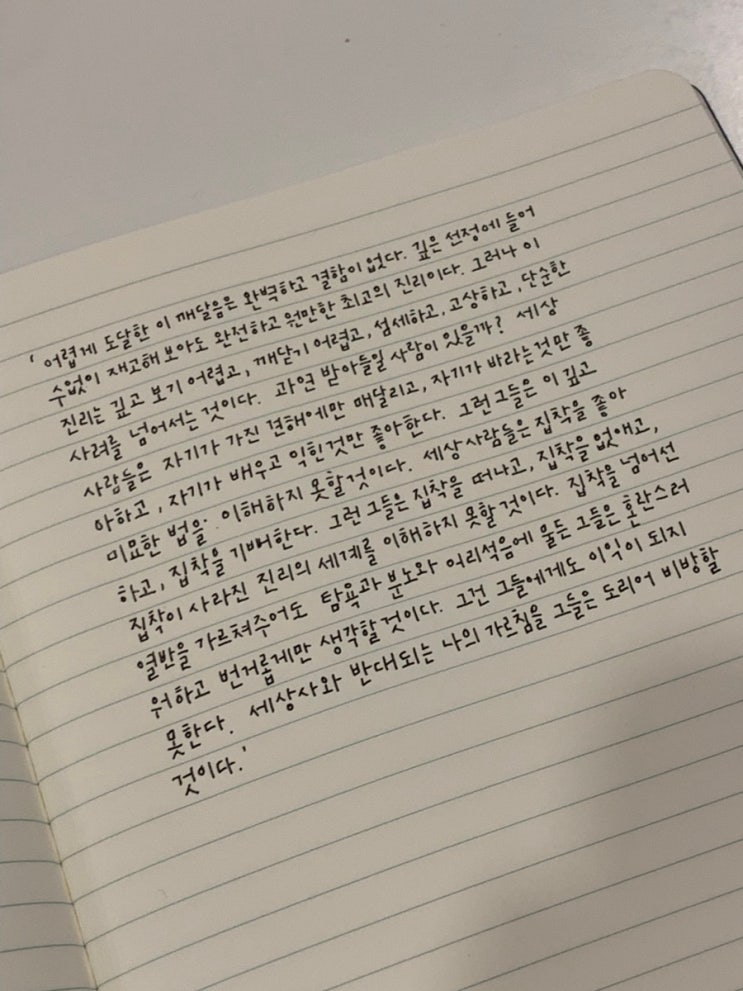 ' 어렵게 도달한 이 깨달음은 완벽하고 결함이 없다. 깊은 선정에 들어
수없이 재고해 보아도 완전하고 원만한 최고의 진리이다. 그러나 이
진리는 깊고 보기 어렵고, 깨닫기 어렵고, 섬세하고, 고상하고, 단순한
사려를 넘어서는 것이다. 과연 받아들일 사람이 있을까? 세상
사람들은 자기가 가진 견해에만 매달리고, 자기가 바라는것만 좋
아하고, 자기가 배우고 익힌것만 좋아한다. 그런 그들은 이 깊고
미묘한 법을 이해하지 못할것이다. 세상사람들은 집착을 좋아
하고, 집착을 기뻐한다. 그런 그들은 집착을 떠나고, 집착을 없애고,
집착이 사라진 진리의 세계를 이해하지 못할것이다. 집착을 넘어선
열반을 가르쳐주어도 탐욕과 분노와 어리석음에 물든 그들은 혼란스러
워하고 번거롭게만 생각할것이다. 그건 그들에게도 이익이 되지
못한다. 세상사와 반대되는 나의 가르침을 그들은 도리어 비방할
것이다.'